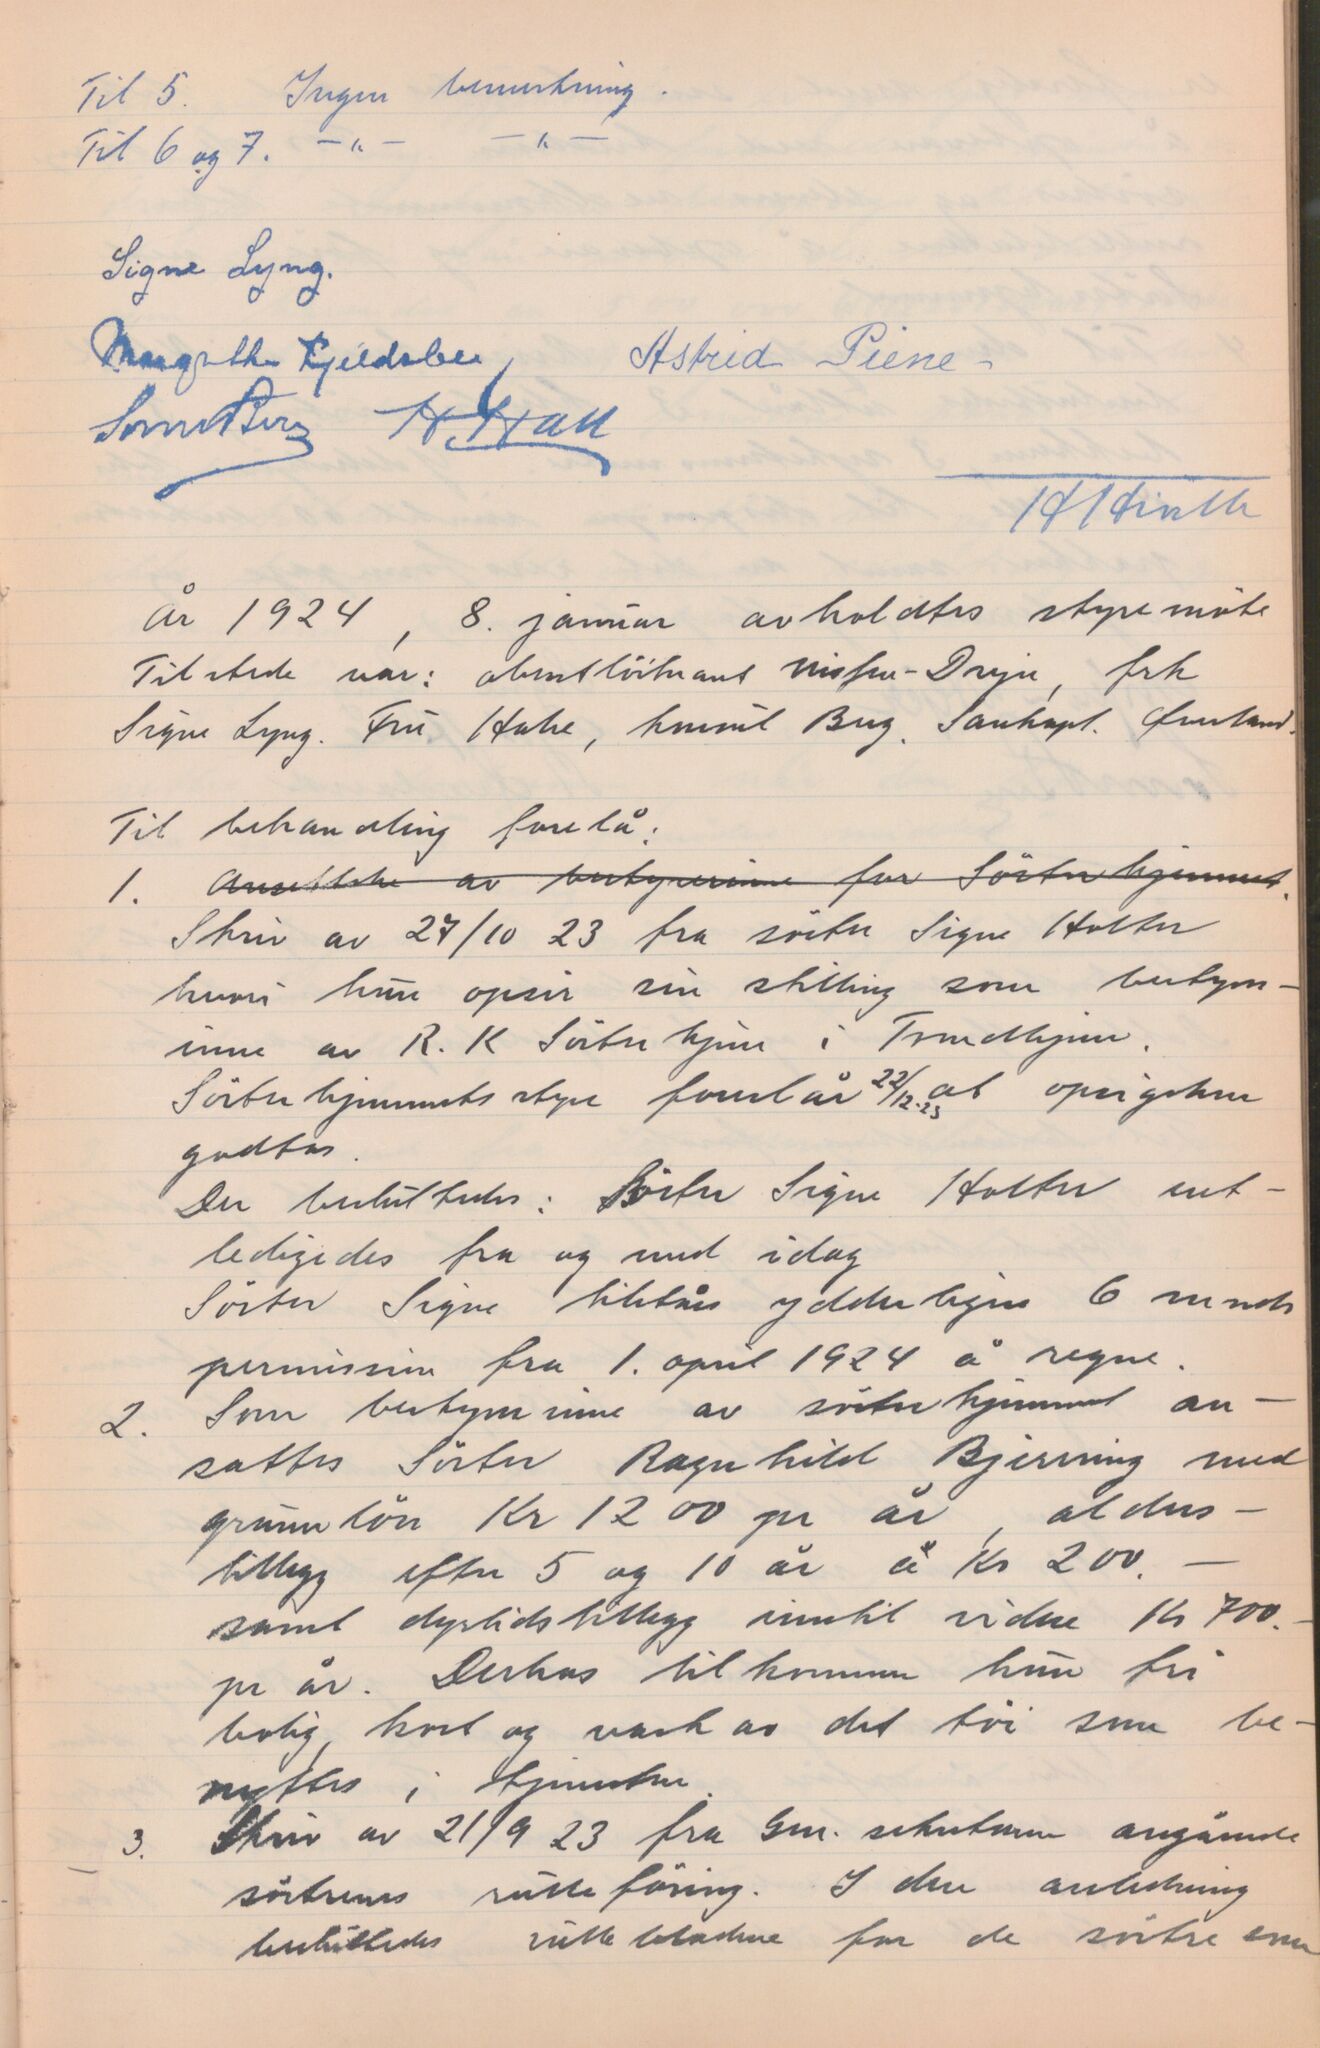 Til 5. Ingen bemerkning.
Til 6 og 7. -"- -"-
Signe Lyng.
Margrethe Kjeldsberg Astrid Piene
H Hall
År 1924, 8. januar avholdtes styremöte
Tilstede var: oberstlöitnant Nissen-Dreyer, frk
Signe Lyng. Fru Hahe, konsul Bug. Sankapt. Øverland.
Til behandling forelå:
1. Ansettelse av bestyrerinne for Sösterhjemmet.
Skriv av 27/10 23 fra söster Signe Holter
hvori hun opsir sin stilling som bestyrer-
inne av R.K Sösterhjem i Trondhjem.
Sösterhjemmets styre foreslår 22/12-23 at opsigelsen
godtas.
Der besluttedes: Söster Signe Holter ent-
ledigedes fra og med idag
Söster Signe tilståes yderligere 6 mnds
permission fra 1. april 1924 å regne.
2. Som bestyrerinne av sösterhjemmet an-
sattes Söster Ragnhild Bjerring med
grunnlön Kr 1200 pr år, alders-
tillegg efter 5 og 10 år á Kr 200.-
samt dyrtidstillegg inntil videre Kr 700.-
pr år. Derhos tilkommer hun fri
bolig, kost og vask av det töi som be-
nyttes i tjenesten.
3. Skriv av 21/9 23 fra Gen. sekretæren angående
söstrenes rulleföring. I den anledning
besluttedes rullebladene for de söstre som